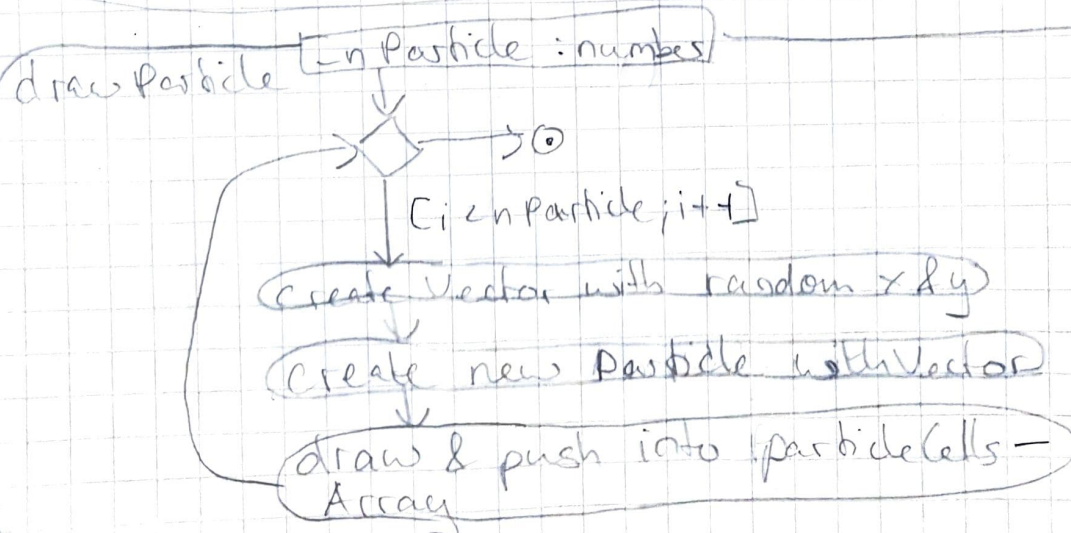 _nParticle : number
drawParticle
[i < nParticle; i++]
Create Vector with random x & y
Create new Particle with Vector
draw & push into particleCells-
Array